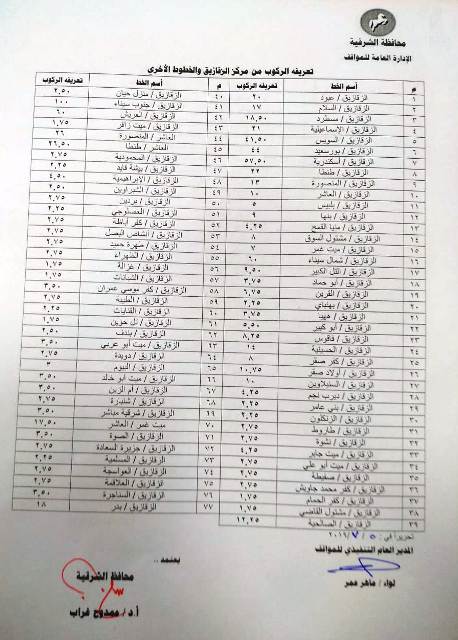 محافظة الشرقية
الإدارة العامة للمواقف
تعريفه الركوب من مركز الزقازيق والخطوط الأخرى
م أسم الخط تعريفه الركوب
١ الزقازيق / عبود ٢٠
٢ الزقازيق / السلام ١٧
٣ الزقازيق / مسطرد ١٨,٥٠
٤ الزقازيق / الإسماعيلية ٢١
٥ الزقازيق / السويس ٤١,٥٠
٦ الزقازيق / بورسعيد ٤٤
٧ الزقازيق / أسكندرية ٥٧,٥٠
٨ الزقازيق / طنطا ٢٢
٩ الزقازيق / المنصورة ١٣
١٠ الزقازيق / العاشر ١٠
١١ الزقازيق / بلبيس ٥
١٢ الزقازيق / بنها ٩
١٣ الزقازيق / منيا القمح ٤,٢٥
١٤ الزقازيق / مشتول السوق ٨
١٥ الزقازيق / ميت غمر
١٦ الزقازيق / شمال سيناء ٦٠
١٧ الزقازيق / التل الكبير ٩,٥٠
١٨ الزقازيق / أبو حماد ٣,٧٥
١٩ الزقازيق / القرين ٦,٧٥
٢٠ الزقازيق / بهنباي ٢,٢٥
٢١ الزقازيق / ههيا ٣,٧٥
٢٢ الزقازيق / أبو كبير ٥,٥٠
٢٣ الزقازيق / فاقوس ٨,٢٥
٢٤ الزقازيق / الحسينية ١٤
٢٥ الزقازيق / كفر صقر ٨
٢٦ الزقازيق / أولاد صقر ١٠,٧٥
٢٧ الزقازيق / السنبلاوين ١٠
٢٨ الزقازيق / ديرب نجم ٤,٢٥
٢٩ الزقازيق / بني عامر ٢,٢٥
٣٠ الزقازيق / الزنكلون ٢,٢٥
٣١ الزقازيق / طاروط ٢,٧٥
٣٢ الزقازيق / نشوة ٢,٧٥
٣٣ الزقازيق / ميت جابر ٤,٢٥
٣٤ الزقازيق / ميت أبو علي ٢,٧٥
٣٥ الزقازيق / صفيطة ٢,٧٥
٣٦ الزقازيق / كفر محمد جاويش ٢,٧٥
٣٧ الزقازيق / كفر الحمام ١,٧٥
٣٨ الزقازيق / مشتول القاضي ١,٧٥
٣٩ الزقازيق / الصالحية ١٢,٢٥
م أسم الخط تعريفه الركوب
٤٠ الزقازيق / منزل حيان ٢,٥٠
٤١ الزقازيق / جنوب سيناء ١٠٠
٤٢ الزقازيق / العريش ٦٠
٤٣ الزقازيق / ميت زافر ١,٧٥
٤٤ العاشر / المنصورة ٢٦
٤٥ العاشر / طنطا ٢٦,٥٠
٤٦ الزقازيق / المحمودية ٢,٧٥
٤٧ الزقازيق / بيشة قايد ٢,٧٥
٤٨ الزقازيق / الإبراهيمية ٤,٥٠
٤٩ الزقازيق / الشبراوين ٢,٥٠
٥٠ الزقازيق / بردين ٢,٧٥
٥١ الزقازيق / العصلوجي ٢,٧٥
٥٢ الزقازيق / كفر أباظة ٢,٧٥
٥٣ الزقازيق / أنشاص البصل ٢,٧٥
٥٤ الزقازيق / شهرة حميد ٢,٧٥
٥٥ الزقازيق / الظهراء ٢,٧٥
٥٦ الزقازيق / غزالة ٢,٧٥
٥٧ الزقازيق / الشبانات ٢,٧٥
٥٨ الزقازيق / كفر موسي عمران ٣,٥٠
٥٩ الزقازيق / الطيبة ٢,٧٥
٦٠ الزقازيق / القنايات ٢,٧٥
٦١ الزقازيق / تل حوين
٦٢ الزقازيق / بندف ٢,٥٠
٦٣ الزقازيق / ميت أبو عربي ٣,٥٠
٦٤ الزقازيق / دويدة ٢,٧٥
٦٥ الزقازيق / البيوم ٣
٦٦ الزقازيق / ميت أبو خالد ٣,٥٠
٦٧ الزقازيق / أم الزين ٣,٥٠
٦٨ الزقازيق / شنبارة ٢,٧٥
٦٩ الزقازيق / شرقية مباشر ٣,٥٠
٧٠ ميت غمر / العاشر ١٧,٥٠
٧١ الزقازيق / الصوة ٣,٥٠
٧٢ الزقازيق / جزيرة السعادة ٢,٧٥
٧٣ الزقازيق / المسلمية ٢,٧٥
٧٤ الزقازيق / العواسجة ٢,٧٥
٧٥ الزقازيق / العلاقمة ٢,٧٥
٧٦ الزقازيق / السناجرة ٣,٥٠
٧٧ الزقازيق / بدر ١٨
تحريراً في : ٥ / ٧ / ٢٠١٩
المدير العام التنفيذي للمواقف
لواء / ماهر عمر
يعتمد ،،
محافظ الشرقية
أ.د / ممدوح غراب